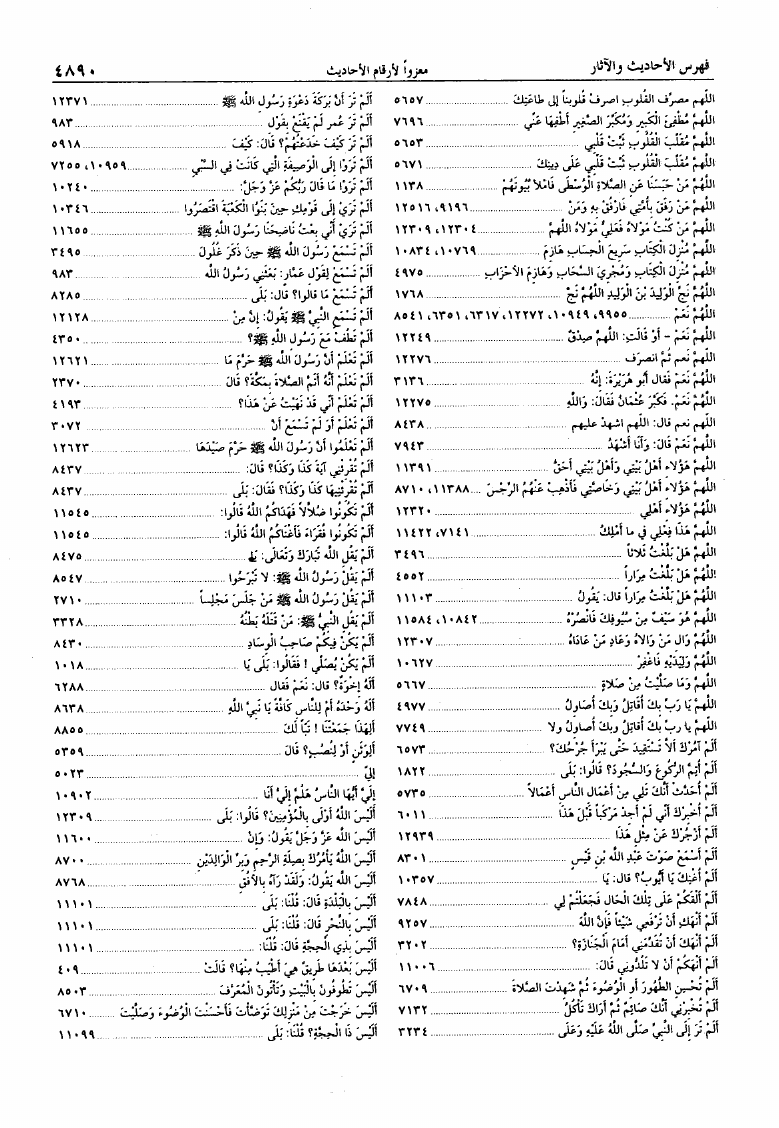 فهرس الأحاديث والآثار
معزواً لأرقام الأحاديث
٤٨٩٠
اللهم مصرِّف القلوب اصرف قلوبنا إلى طاعتِكَ ٥٦٥٧
اللَّهُمَّ مُطْفِئَ الْكَبِيرِ وَمُكَبِّرَ الصَّغِيرِ أَطْفِهَا عَنِّي ٧٦٩٦
اللَّهُمَّ مُقَلِّبَ الْقُلُوبِ ثَبِّتْ قَلْبِي ٥٦٥٣
اللَّهُمَّ مُقَلِّبَ الْقُلُوبِ ثَبِّتْ قَلْبِي عَلَى دِينِكَ ٥٦٧١
اللَّهُمَّ مَنْ حَبَسَنَا عَنِ الصَّلَاةِ الْوُسْطَى فَامْلَأْ بُيُوتَهُمْ ١١٣٨
اللَّهُمَّ مَنْ رَفَقَ بِأُمَّتِي فَارْفُقْ بِهِ وَمَنْ ٩١٩٦، ١٢٥١٦
اللَّهُمَّ مَنْ كُنْتُ مَوْلَاهُ فَعَلِيٌّ مَوْلَاهُ اللَّهُمَّ ١٢٣٠٤، ١٢٣٠٩
اللَّهُمَّ مُنْزِلَ الْكِتَابِ سَرِيعَ الْحِسَابِ هَازِمَ ١٠٧٦٩، ١٠٨٣٤
اللَّهُمَّ مُنْزِلَ الْكِتَابِ وَمُجْرِيَ السَّحَابِ وَهَازِمَ الْأَحْزَابِ ٤٩٧٥
اللَّهُمَّ نَجِّ الْوَلِيدَ بْنَ الْوَلِيدِ اللَّهُمَّ نَجِّ ١٧٦٨
اللَّهُمَّ نَعَمْ ٩٩٥٥، ١٠٩٤٩، ١٢٢٧٢، ٦٣١٧، ٦٣٥١، ٨٥٤١
اللَّهُمَّ نَعَمْ - أَوْ قَالَتِ: اللَّهُمَّ صِدْقٌ ١٢٢٤٩
اللَّهُمَّ نَعم ثُمَّ انصرَف ١٢٢٧٦
اللَّهُمَّ نَعَمْ فَقال أَبُو هُرَيْرَةَ: إِنَّهُ ٣١٣٦
اللَّهُمَّ نَعَمْ. فَكَبَّرَ عُثْمَانُ فَقَالَ: وَاللَّهِ ١٢٢٧٥
اللهم نعم قال: اللهم اشهدْ عليهم ٨٤٣٨
اللَّهُمَّ نَعَمْ قَالَ: وَأَنَا أَشْهَدُ ٧٩٤٣
اللَّهُمَّ هَؤُلَاءِ أَهْلُ بَيْتِي وَأَهْلُ بَيْتِي أَحَقُّ ١١٣٩١
اللَّهُمَّ هَؤُلَاءِ أَهْلُ بَيْتِي وَخَاصَّتِي فَأَذْهِبْ عَنْهُمُ الرِّجْسَ ١١٣٨٨، ٨٧١٠
اللَّهُمَّ هَؤُلَاءِ أَهْلِي ١٢٣٢٠
اللَّهُمَّ هَذَا فِعْلِي فِي ما أَمْلِكُ ٧١٤١، ١١٤٢٢
اللَّهُمَّ هَلْ بَلَّغْتُ ثَلاثاً ٣٤٩٦
اللَّهُمَّ هَلْ بَلَّغْتُ مِرَاراً ٤٥٥٢
اللَّهُمَّ هَلْ بَلَّغْتُ مِرَاراً قال: يَقُولُ ١١١٠٣
اللَّهُمَّ هُوَ سَيْفٌ مِنْ سُيُوفِكَ فَانْصُرْهُ ١٠٨٤٢، ١١٥٨٤
اللَّهُمَّ وَالِ مَنْ وَالَاهُ وَعَادِ مَنْ عَادَاهُ ١٢٣٠٧
اللَّهُمَّ وَلِيَدَيْهِ فَاغْفِرْ ١٠٦٢٧
اللَّهُمَّ وَمَا صَلَّيْتُ مِنْ صَلَاةٍ ٥٦٦٧
اللَّهُمَّ يَا رَبِّ بِكَ أُقَاتِلُ وَبِكَ أُصَاوِلُ ٤٩٧٧
اللَّهُمَّ يا ربِّ بكَ أقاتلُ وبِكَ أصاوِلُ ولا ٧٧٤٩
أَلَمْ آمُرْكَ أَلَّا تَسْتَقِيدَ حَتَّى يَبْرَأَ جُرْحُكَ؟ ٦٥٧٣
أَلَمْ أُتِمَّ الرُّكُوعَ وَالسُّجُودَ؟ قَالُوا: بَلَى ١٨٢٢
أَلَمْ أُحَدَّثْ أَنَّكَ تَلِي مِنْ أَعْمَالِ النَّاسِ أَعْمَالاً ٥٧٣٥
أَلَمْ أُخبِرْكَ أنِّي لَمْ أَجِدْ مَرْكَباً قَبْلَ هَذَا ٦٠١١
أَلَمْ أَزْجُرْكَ عَنْ مِثْلِ هَذَا ١٢٩٣٩
أَلَمْ أَسْمَعْ صَوْتَ عَبْدِ اللَّهِ بْنِ قَيْسٍ ٨٣٠١
أَلَمْ أُغْنِكَ يَا أَيُّوبُ؟ قال: يَا ١٠٣٥٧
أَلَمْ أَلْقَكُمْ عَلَى تِلْكَ الْحَالِ فَجَعَلْتُمْ لِي ٧٨٤٨
أَلَمْ أَنْهَكِ أَنْ تَرْفَعِي شَيْئاً فَإِنَّ اللَّهَ ٩٢٥٧
أَلَمْ أَنْهَكَ أَنْ تُقَدِّمَنِي أَمَامَ الْجَنَازَةِ؟ ٣٢٠٢
أَلَمْ أَنْهَكُمْ أَنْ لَا تَلُدُّونِي قَالَ: ١١٠٠٦
أَلَمْ تُحْسِنِ الطُّهُورَ أَوِ الْوُضُوءَ ثُمَّ شَهِدْتَ الصَّلَاةَ ٦٧٠٩
أَلَمْ تُخْبِرْنِي أَنَّكَ صَائِمٌ ثُمَّ أَرَاكَ تَأْكُلُ ٧١٣٢
أَلَمْ تَرَ إِلَى النَّبِيِّ صَلَّى اللَّهُ عَلَيْهِ وَعَلَى ٣٢٣٤
أَلَمْ تَرَ أَنَّ بَرَكَةَ دَعْوَةِ رَسُولِ اللَّهِ ﷺ ١٢٣٧١
أَلَمْ تَرَ عُمر لَمْ يَقْنَعْ بِقَوْلِ ٩٨٣
أَلَمْ تَرَ كَيْفَ خَدَعْتُهُمْ؟ قَالَ: كَيْفَ ٥٩١٨
أَلَمْ تَرَوْا إِلَى الْوَصِيفَةِ الَّتِي كَانَتْ فِي السَّبْيِ ١٠٩٥٩، ٧٢٥٥
أَلَمْ تَرَوْا مَا قَالَ رَبُّكُمْ عَزَّ وَجَلَّ: ١٠٢٤٠
أَلَمْ تَرَيْ إِلَى قَوْمِكِ حِينَ بَنَوُا الْكَعْبَةَ اقْتَصَرُوا ١٠٣٤٦
أَلَمْ تَرَيْ أَنِّي بِعْتُ نَاضِحَنَا رَسُولَ اللَّهِ ﷺ ١١٦٥٥
أَلَمْ تَسْمَعْ رَسُولَ اللَّهِ ﷺ حِينَ ذَكَرَ غُلُولَ ٣٤٩٥
أَلَمْ تَسْمَعْ لِقَوْلِ عَمَّارٍ: بَعَثَنِي رَسُولُ اللَّهِ ٩٨٣
أَلَمْ تَسْمَعْ مَا قَالُوا؟ قال: بَلَى ٨٢٨٥
أَلَمْ تَسْمَعِ النَّبِيَّ ﷺ يَقُولُ: إِنَّ مِنْ ١٢١٢٨
أَلَمْ تَطُفْ مَعَ رَسُولِ اللَّهِ ﷺ؟ ٤٣٥٠
أَلَمْ تَعْلَمْ أَنَّ رَسُولَ اللَّهِ ﷺ حَرَّمَ مَا ١٢٦٢١
أَلَمْ تَعْلَمْ أَنَّهُ أَتَمَّ الصَّلَاةَ بِمَكَّةَ؟ قَالَ ٢٣٧٠
أَلَمْ تَعْلَمْ أَنِّي قَدْ نَهَيْتُ عَنْ هَذَا؟ ٤١٩٣
أَلَمْ تَعْلَمْ أَوَ لَمْ تَسْمَعْ أَنَّ ٣٠٧٢
أَلَمْ تَعْلَمُوا أَنَّ رَسُولَ اللَّهِ ﷺ حَرَّمَ صَيْدَهَا ١٢٦٢٣
أَلَمْ تُقْرِئْنِي آيَةَ كَذَا وَكَذَا؟ قَالَ: ٨٤٣٧
أَلَمْ تُقْرِئْنِيهَا كَذَا وَكَذَا؟ فَقَالَ: بَلَى ٨٤٣٧
أَلَمْ تَكُونُوا ضُلَّالاً فَهَدَاكُمُ اللَّهُ قَالُوا: ١١٥٤٥
أَلَمْ تَكُونُوا فُقَرَاءَ فَأَغْنَاكُمُ اللَّهُ قَالُوا: ١١٥٤٥
أَلَمْ يَقُلِ اللَّهُ تَبَارَكَ وَتَعَالَى: ٨٤٧٥
أَلَمْ يَقُلْ رَسُولُ اللَّهِ ﷺ: لَا تَبْرَحُوا ٨٥٤٧
أَلَمْ يَقُلْ رَسُولُ اللَّهِ ﷺ مَنْ جَلَسَ مَجْلِساً ٢٧١٠
أَلَمْ يَقُلِ النَّبِيُّ ﷺ: مَنْ قَتَلَهُ بَطْنُهُ ٣٣٢٨
أَلَمْ يَكُنْ فِيكُمْ صَاحِبُ الْوِسَادِ ٨٤٣٠
أَلَمْ يَكُنْ يُصَلِّي! فَقَالُوا: بَلَى يَا ١٠١٨
أَلَهُ إِخْوَةٌ؟ قال: نَعَمْ فَقال ٦٢٨٨
أَلَهُ وَحْدَهُ أَمْ لِلنَّاسِ كَافَّةً يَا نَبِيَّ اللَّهِ ٨٦٣٨
أَلِهَذَا جَمَعْتَنَا! تَبًّا لَكَ ٨٨٥٥
أَلِوَثَنٍ أَوْ لِنُصُبٍ؟ قَالَ ٥٣٥٩
إِلَيَّ ٥٠٢٣
إِلَيَّ أَيُّهَا النَّاسُ هَلُمَّ إِلَيَّ أَنَا ١٠٩٠٢
أَلَيْسَ اللَّهُ أَوْلَى بِالْمُؤْمِنِينَ؟ قَالُوا: بَلَى ١٢٣٠٩
أَلَيْسَ اللَّهُ عَزَّ وَجَلَّ يَقُولُ: وَإِنْ ١١٦٠٠
أَلَيْسَ اللَّهُ يَأْمُرُكَ بِصِلَةِ الرَّحِمِ وَبِرِّ الْوَالِدَيْنِ ٨٧٠٠
أَلَيْسَ اللَّهُ يَقُولُ: وَلَقَدْ رَآهُ بِالْأُفُقِ ٨٧٦٨
أَلَيْسَ بِالْبَلْدَةِ قَالَ: قُلْنَا: بَلَى ١١١٠١
أَلَيْسَ بِالنَّحْرِ قَالَ: قُلْنَا: بَلَى ١١١٠١
أَلَيْسَ بِذِي الْحِجَّةِ قَالَ: قُلْنَا: ١١١٠١
أَلَيْسَ بَعْدَهَا طَرِيقٌ هِيَ أَطْيَبُ مِنْهَا؟ قَالَتْ ٤٠٩
أَلَيْسَ تَطُوفُونَ بِالْبَيْتِ وَتَأْتُونَ الْمُعَرَّفَ ٨٥٠٣
أَلَيْسَ خَرَجْتَ مِنْ مَنْزِلِكَ تَوَضَّأْتَ فَأَحْسَنْتَ الْوُضُوءَ وَصَلَّيْتَ ٦٧١٠
أَلَيْسَ ذَا الْحِجَّةِ؟ قُلْنَا: بَلَى ١١٠٩٩